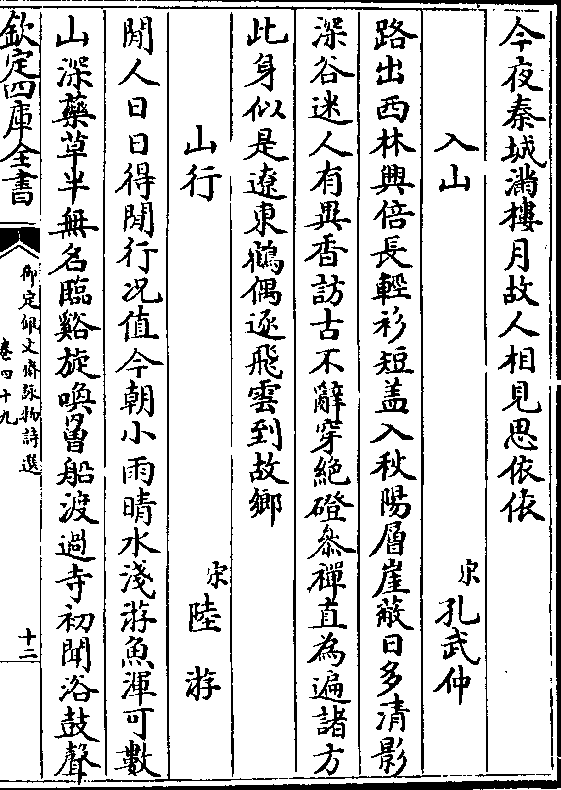 今夜秦城滿樓月故人相見思依依
入山　宋孔武仲
路出西林興倍長輕衫短盖入秋陽層崖蔽日多清影
深谷迷人有異香訪古不辭穿絶磴叅禪直為遍諸方
此身似是遼東鶴偶逐飛雲到故鄉
山行　宋陸游
閒人日日得閒行况值今朝小雨晴水淺游魚渾可數
山深藥草半無名臨谿旋喚罾船渡過寺初聞浴鼓聲
欽定四庫全書
御定佩文齋詠物詩選
卷四十九
十二